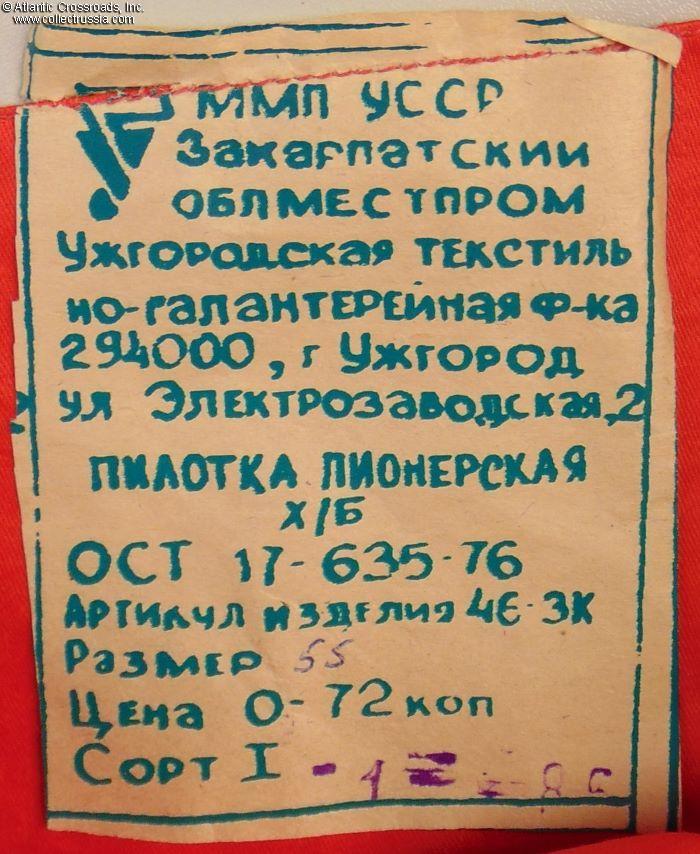 © Atlantic Crossroads, Inc.
www.collectrussia.com
ММП УССР
Закарпатский
облместпром
Ужгородская текстиль
но-галантерейная ф-ка
294000, г Ужгород
ул Электрозаводская, 2
ПИЛОТКА ПИОНЕРСКАЯ
Х/Б
ОСТ 17-635-76
Артикул изделия 4Е-3К
Размер 55
Цена 0-72 коп
Сорт I